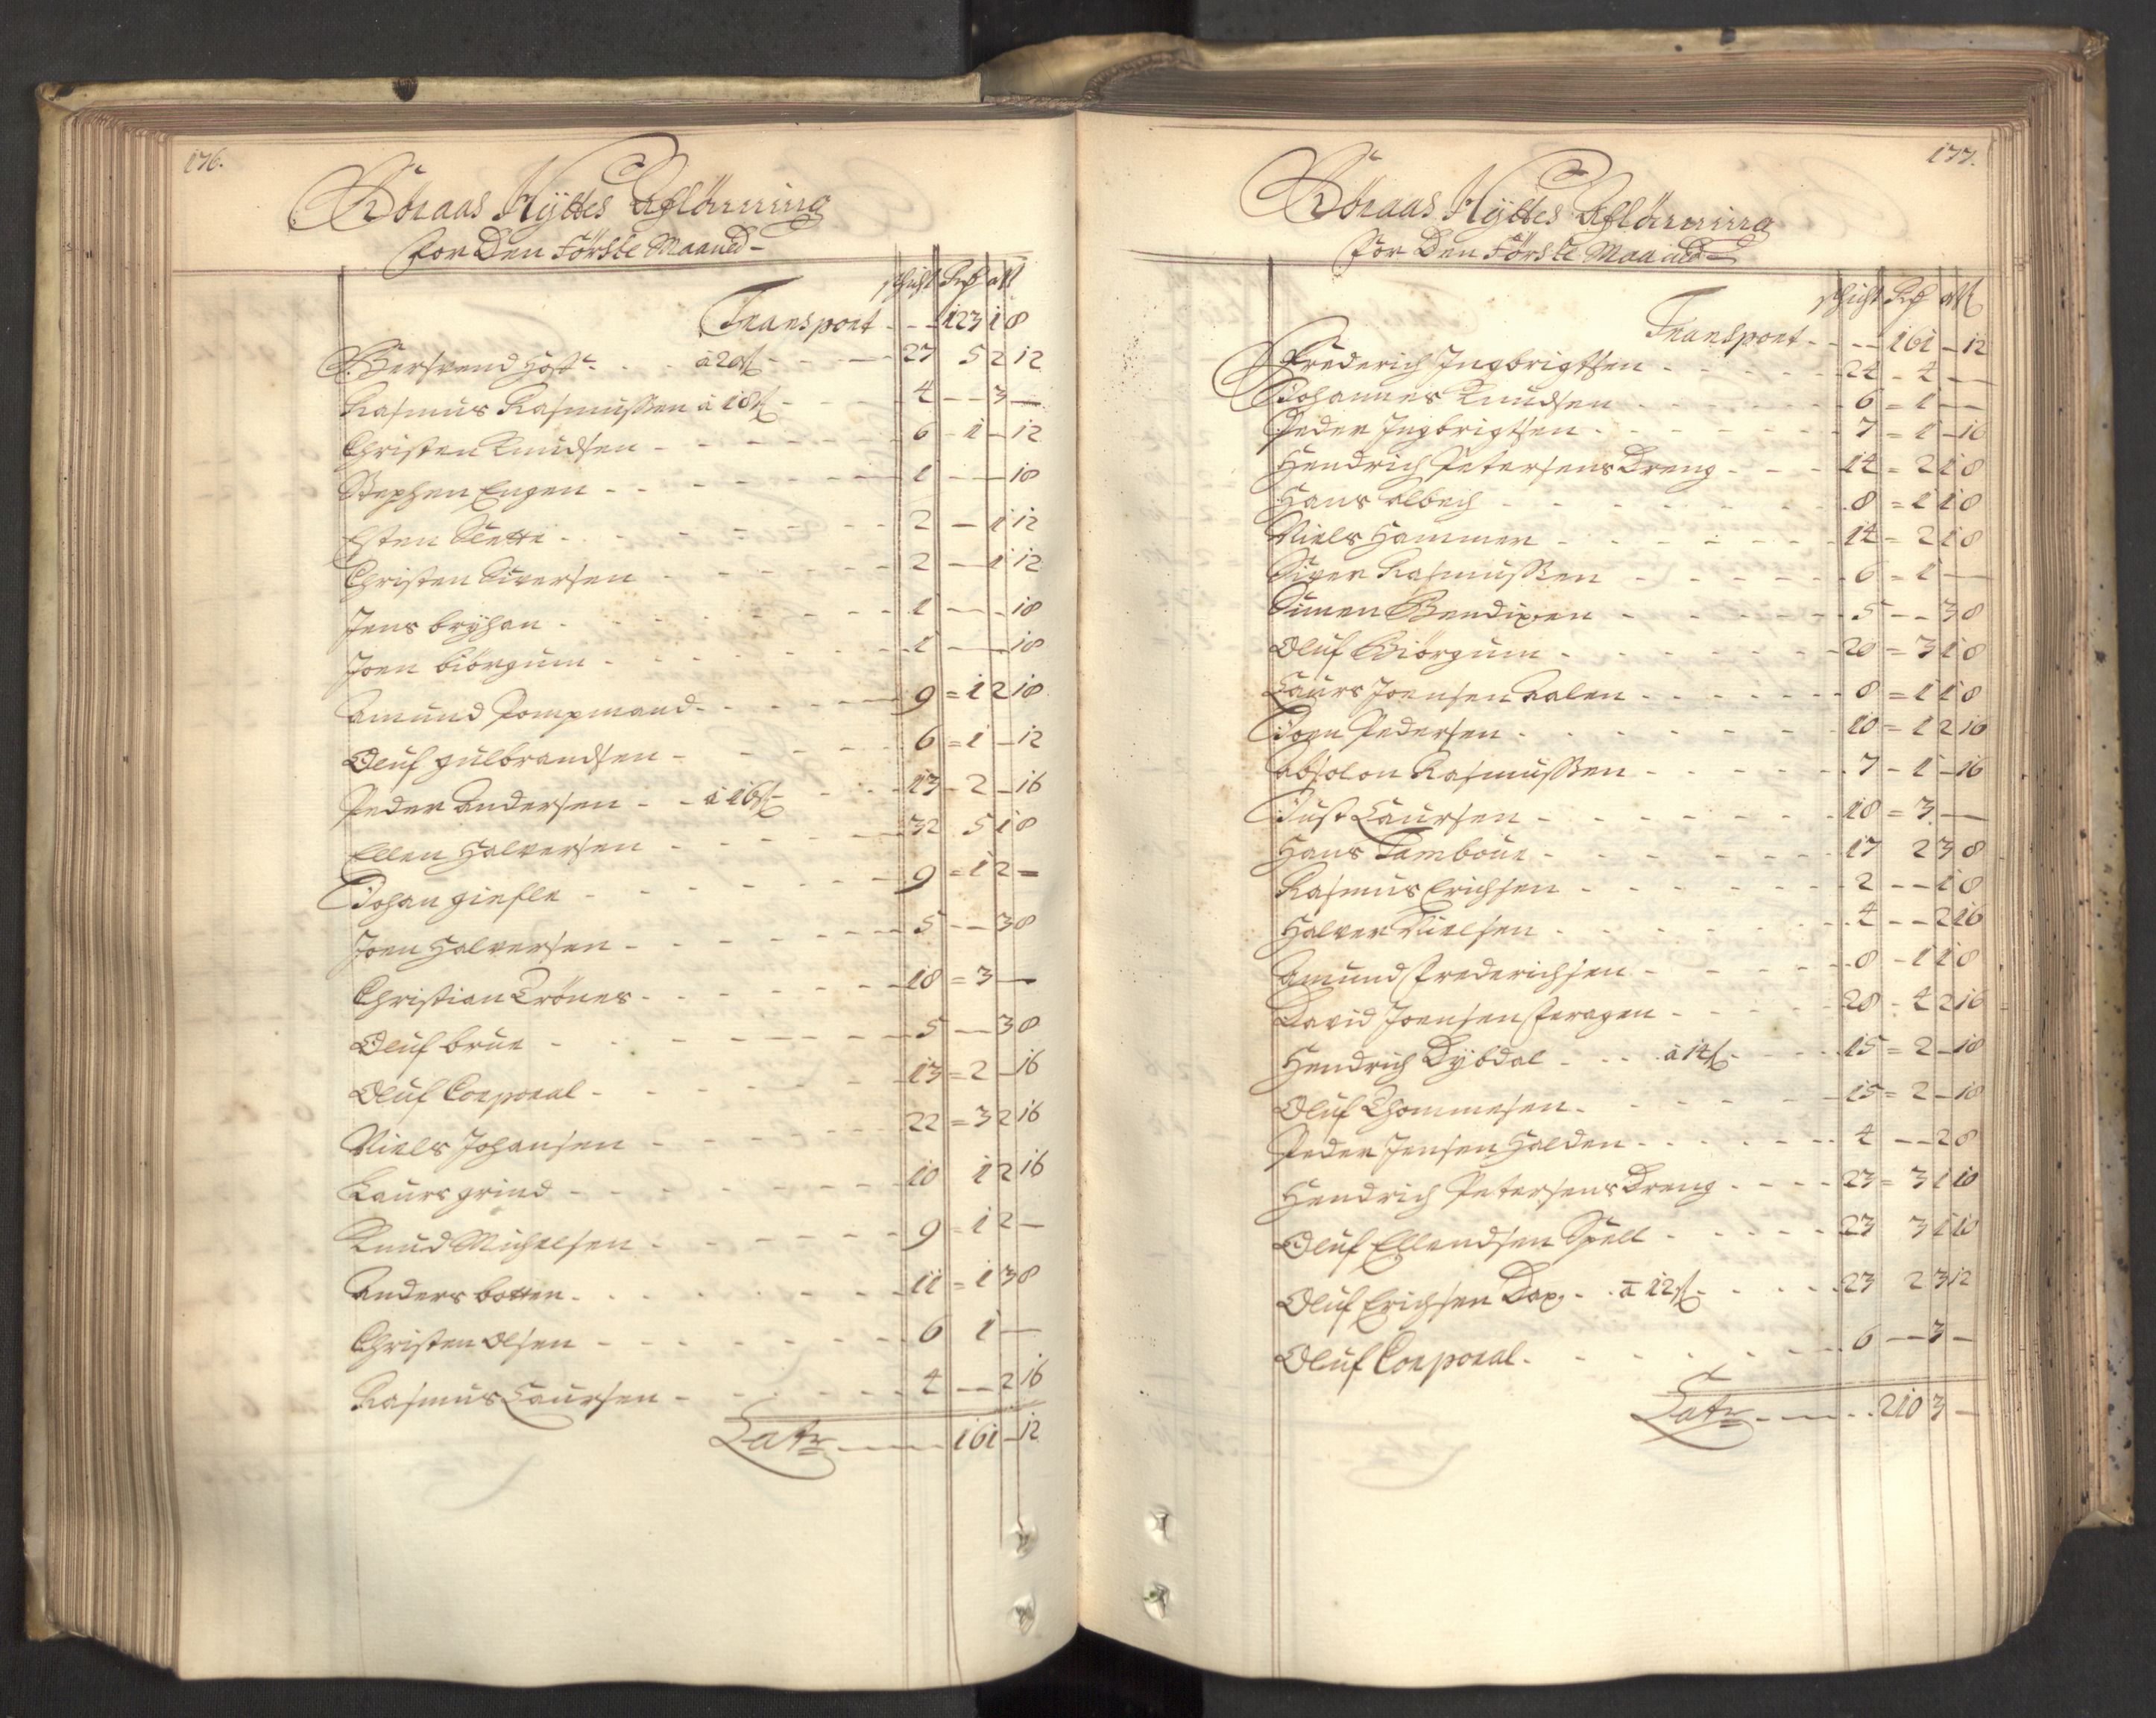 176.
Röraas Hyttes Aflönning
for Den Förste Maaned
schicht Rd ort ß
Transport - - - 123 1 8
Bersvend Høst à 20 ß - - - 27 5 2 12
Rasmus Rasmussen à 18 ß - - - 4 - - 3 -
Christen Knudsen - - - 6 - 1 - 12
Stephen Engen - - - 1 - - 18
Esten Slette - - - 2 - 1 12
Christen Siversen - - - 2 - 1 12
Jens bryhan - - - 1 - - 18
Joen biörgum - - - 1 - - 18
Amund Pompmand - - - 9 = 1 2 18
Oluf gulbrandsen - - - 6 = 1 - 12
Peder Andersen - - à 16 ß - - - 13 - 2 - 16
Ellen Halversen - - - 32 5 1 8
Johan giefle - - - 9 = 1 2 -
Joen Halversen - - - 5 - - 3 8
Christian Trönes - - - 18 = 3 -
Oluf brue - - - 5 - - 3 8
Oluf Corporal - - - 13 = 2 - 16
Niels Johansen - - - 22 = 3 2 16
Laurs grind - - - 10 1 2 16
Knud Michelsen - - - 9 = 1 2 -
Anders botten - - - 11 = 1 3 8
Christen Olsen - - - 6 1 -
Rasmus Laursen - - - 4 - - 2 16
Latr - - - 161 - 12
177.
Röraas Hyttes Aflönning
for Den Förste Maaned
schicht Rd ort ß
Transport - - - 161 - 12
Frederich Ingbrigtsen - - - 24 - 4 - -
Johannes Knudsen - - - 6 = 1 - -
Peder Ingbrigtsen - - - 7 = 1 - 16
Hendrich Petersens Dreng - - - 14 = 2 1 8
Hans Albech - - - 8 = 1 1 8
Niels Hammer - - - 14 = 2 1 8
Siver Rasmussen - - - 6 = 1 -
Simen Bendixen - - - 5 - - 3 8
Oluf Biörgum - - - 20 = 3 1 8
Laurs Joensen Aalen - - - 8 = 1 1 8
Joen Pedersen - - - 10 = 1 2 16
Absolon Rasmussen - - - 7 - 1 - 16
Just Laursen - - - 18 = 3 -
Hans Tambour - - - 17 2 3 8
Rasmus Erichsen - - - 2 - - 1 8
Halver Nielsen - - - 4 - - 2 16
Amund Frederichsen - - - 8 - 1 1 8
David Joensen Feragen - - - 28 - 4 2 16
Hendrich Dybdal - - - à 14 ß - - - 15 = 2 - 18
Oluf Thommesen - - - 15 = 2 - 18
Peder Jensen Halden - - - 4 - - 2 8
Hendrich Petersens Dreng - - - 23 = 3 1 10
Oluf Ellendsen Spell - - - 23 3 1 10
Oluf Erichsen Dax - à 12 ß - - - 23 2 3 12
Oluf Corporal - - - 6 - - 3 -
Latr - - - 210 3 -